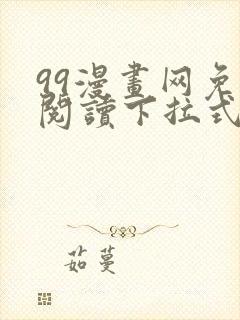 99漫畫网免
閱讀下拉式
茹蔓